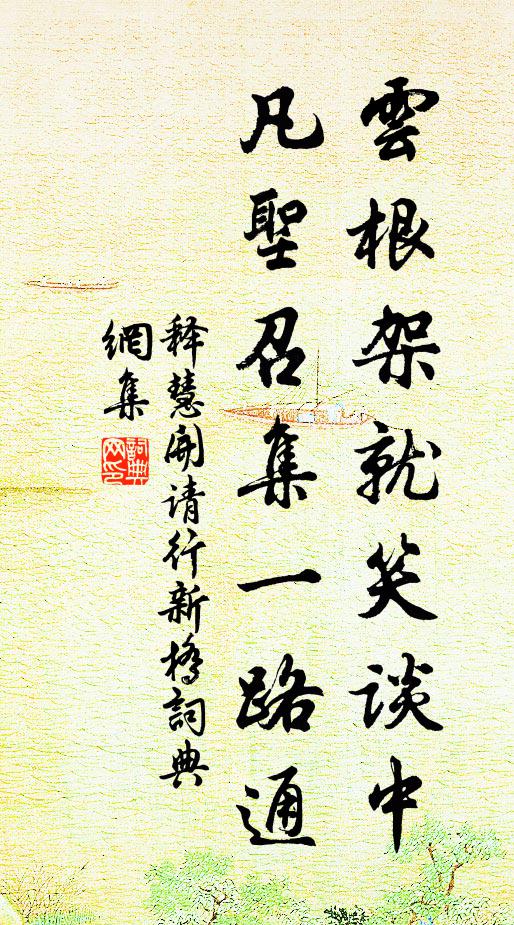 雲根架就笑談中
凡聖召集一路通
释慧開请行新橋詞典
網集
詞典
网印